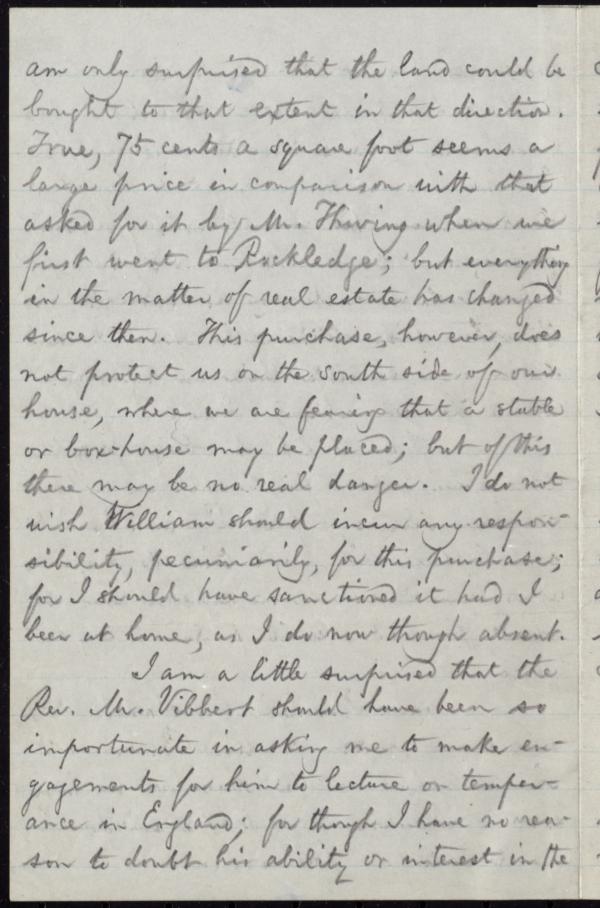 am only surprised that the land could be
bought to that extent in that direction.
True, 75 cents a square foot seems a
large price in comparison with that
asked for it by Mr. Thwing when we
first went to Rockledge; but everything
in the matter of real estate has changed
since then. This purchase, however, does
not protect us on the south side of our
house, where we are fearing that a stable
or box-house may be placed; but of this
there may be no real danger. I do not
wish William should incur any respon-
sibility, pecuniarily, for this purchase;
for I should have sanctioned it had I
been at home, as I do now though absent.
I am a little surprised that the
Rev. Mr. Vibbert should have been so
importunate in asking me to make en-
gagements for him to lecture on temper-
ance in England; for though I have no rea-
son to doubt his ability or interest in the